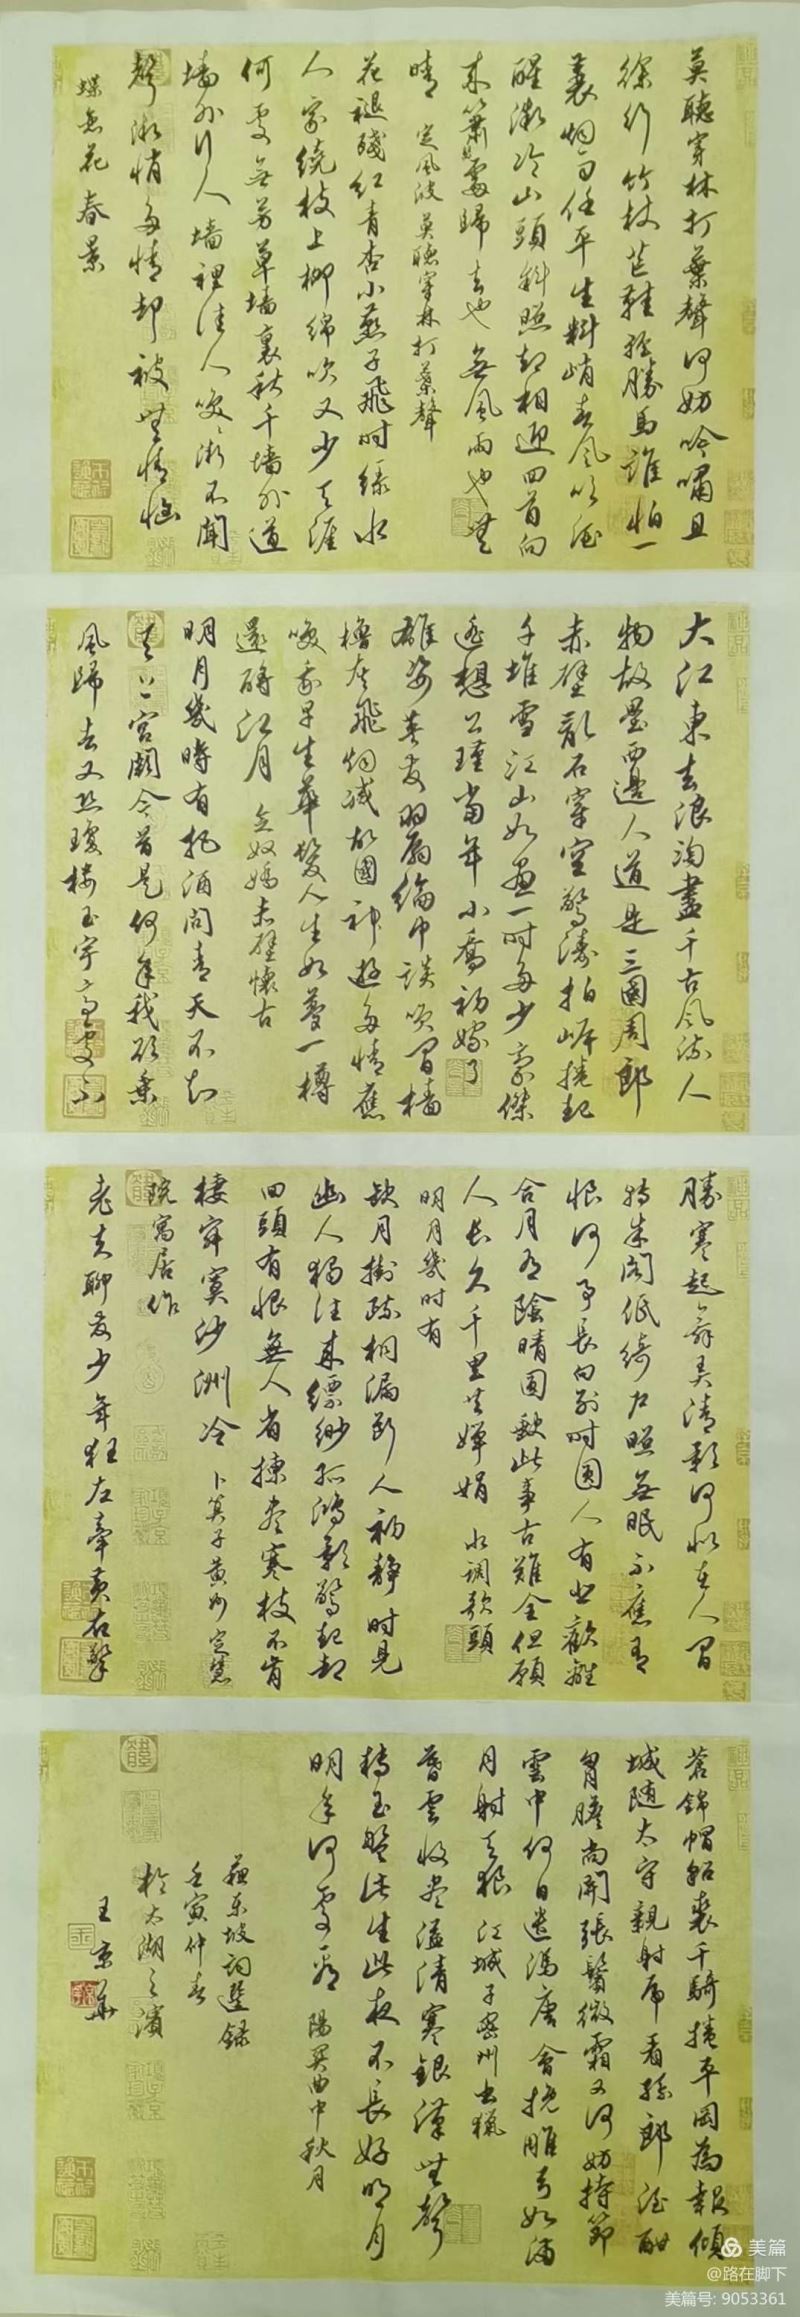 莫聽穿林打葉聲何妨吟嘯且
徐行竹杖芒鞋輕勝馬誰怕一
蓑烟雨任平生料峭春風吹酒
醒微冷山頭斜照却相迎回首向
來蕭瑟處歸去也無風雨也無
晴 定風波莫聽穿林打葉聲
花褪殘紅青杏小燕子飛時綠水
人家繞枝上柳綿吹又少天涯
何處無芳草墻裏秋千墻外道
墻外行人墻裡佳人笑笑漸不聞
聲漸悄多情却被無情惱
蝶戀花春景
大江東去浪淘盡千古風流人
物故壘西邊人道是三國周郎
赤壁亂石穿空驚濤拍岸捲起
千堆雪江山如畫一時多少豪傑
遙想公瑾當年小喬初嫁了
雄姿英發羽扇綸巾談笑間檣
櫓灰飛烟滅故國神遊多情應
笑我早生華髮人生如夢一樽
還酹江月 念奴嬌赤壁懷古
明月幾時有把酒問青天不知
天上宮闕今昔是何年我欲乘
風歸去又恐瓊樓玉宇高處不
勝寒起舞弄清影何似在人間
轉朱閣低綺戶照無眠不應有
恨何事長向別時圓人有悲歡離
合月有陰晴圓缺此事古難全但願
人長久千里共嬋娟 水調歌頭
明月幾时有
缺月掛疏桐漏斷人初靜時見
幽人獨往來縹緲孤鴻影驚起却
回頭有恨無人省揀盡寒枝不肯
棲寂寞沙洲冷 卜算子黃州定慧
院寓居作
老夫聊發少年狂左牽黃右擎
蒼錦帽貂裘千騎捲平岡為報傾
城隨太守親射虎看孫郎酒酣
胸膽尚開張鬢微霜又何妨持節
雲中何日遣馮唐會挽雕弓如滿
月射天狼 江城子密州出獵
暮雲收盡溢清寒銀漢無聲
轉玉盤此生此夜不長好明月
明年何處看 陽關曲中秋月
蘇東坡詞選錄
壬寅仲春
於太湖之濱
王京華
美篇
@路在脚下
美篇号: 9053361